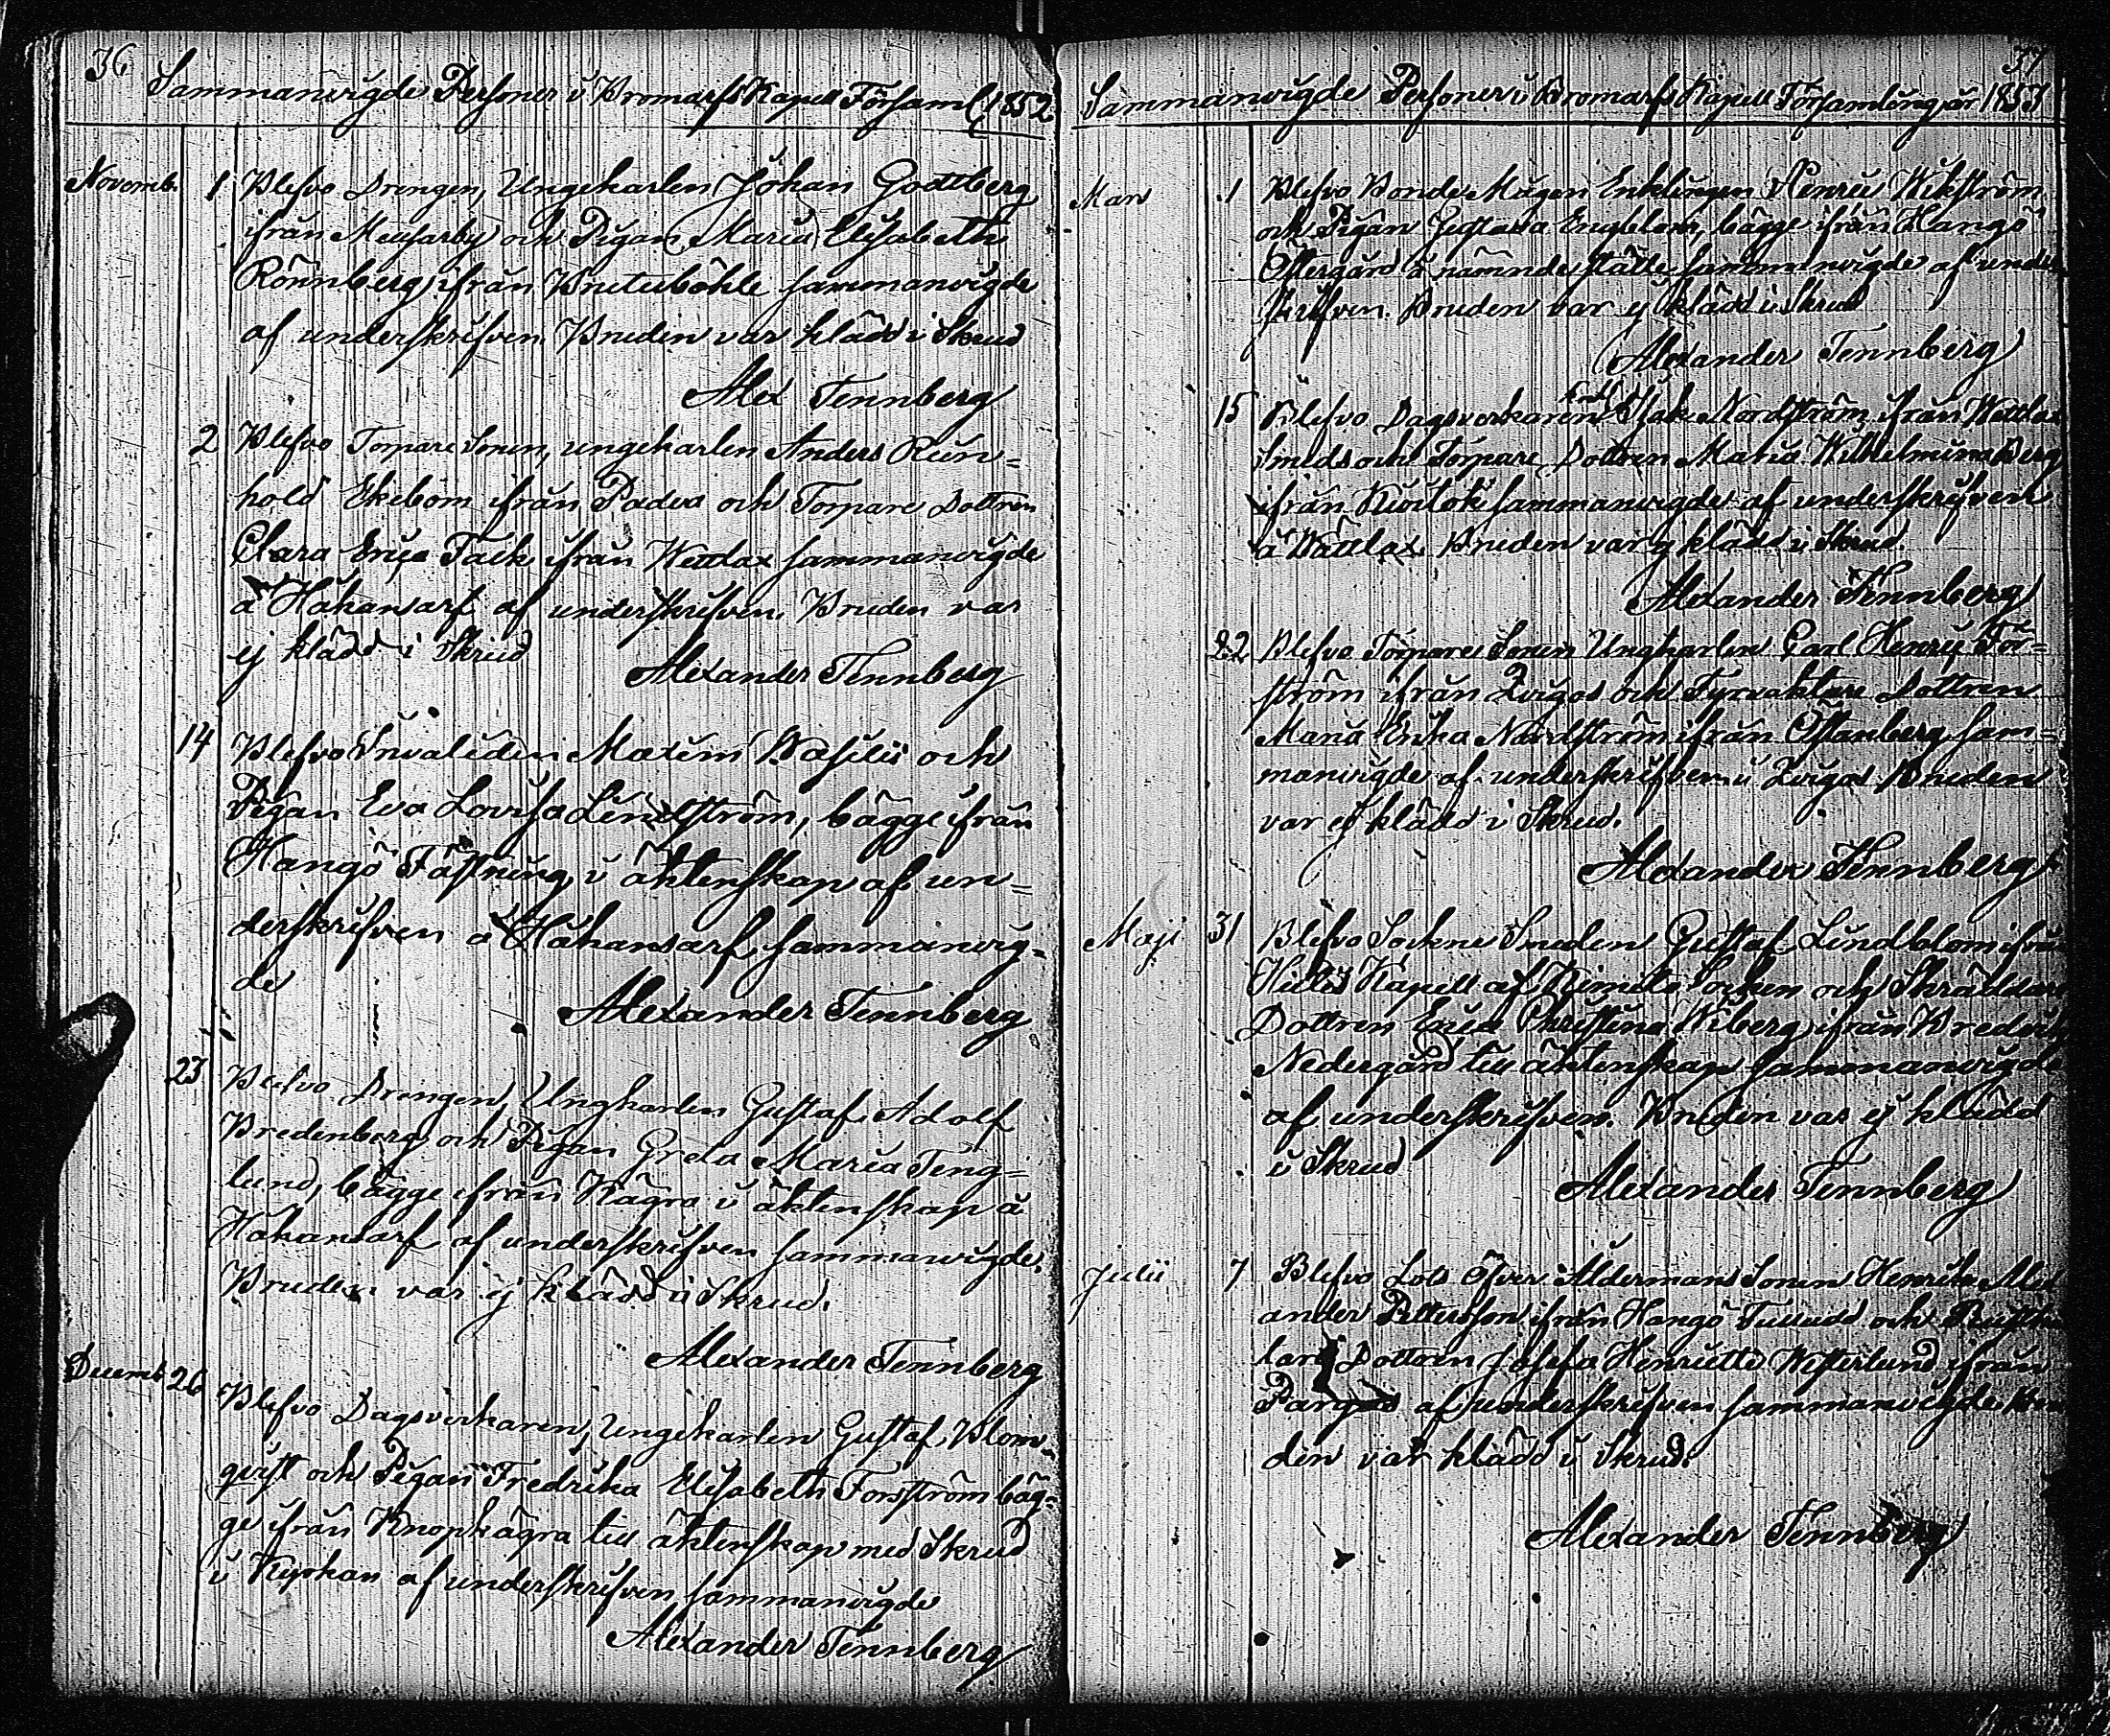 36
Sammanvigde Personer i Bromarfs Kapell Församl 1852
Novemb. 1 Blefvo Drengen, Ungekarlen Johan Gottberg
ifrån och Pigan Maria Elisabeth
Rönnberg ifrån sammanvigde
af underskrifven. Bruden var klädd i Skrud
Alex Tennberg
2 Blefvo Torpare Sonen, ungekarlen Anders Rein=
hold Ekebom ifrån Padva och Torpare Dottren
Clara Erica Tack ifrån Wettlax sammanvigde
å Håkansarf af underskrifven. Bruden var
ej klädd i Skrud
Alexander Tennberg
14 Blefvo Invaliden Maxim Wasilii och
Pigan Eva Lovisa Lindström, bägge ifrån
Hangö Fästning i äktenskap af un=
derskrifven å Håkansarf sammanvig=
de
Alexander Tennberg
23 Blefvo Drengen, Ungkarlen Gustaf Adolf
Bredenberg och Pigan Greta Maria Teng=
lund, bägge ifrån Kägra i äktenskap å
Håkansarf af underskrifven sammanvigde.
Bruden var ej klädd i Skrud.
Alexander Tennberg
Decemb 26 Blefvo Dagsverkaren, Ungekarlen Gustaf Blom=
qvist och Pigan Fredrika Elisabeth Forsström bäg=
ge ifrån Knopkägra till äktenskap med Skrud
i Kyrkan af underskrifven sammanvigde
Alexander Tennberg
37
Sammanvigde Personer i Bromarfs Kapell Församling år 1853
Mars 1 Blefvo Bonde Mågen Enklingen Henric Wikström
och Pigan Gustava Engblom, bägge ifrån Hangö
Östergård å nämnde ställe sammanvigde af under
skrifven. Bruden var ej klädd i Skrud
Alexander Tennberg
15 Blefvo Dagsverkaren Enkl Isak Nordström ifrån Wettlax
Smeds och Torpare Dottren Maria Wilhelmina Berg
ifrån sammanvigde af underskrifven
å Wättlax. Bruden var ej klädd i Skrud.
Alexander Tennberg
22 Blefvo Torpare Sonen Ungkarlen Carl Henric För=
ström ifrån Zirgos och Fyrvaktare Dottren
Maria Erika Nordström ifrån Östanberg sam=
manvigde af underskrifven i Zirgos Bruden
var ej klädd i Skrud.
Alexander Tennberg
Maji 31 Blefvo Sockne Smeden Gustaf Lindblom ifrån
Hitis Kapell af Kimito Socken och Skräddare
Dottren Erica Christina Wiberg ifrån
Nedergård till äktenskap sammanvigde
af underskrifven. Bruden var ej klädd
i Skrud
Alexander Tennberg
Julii 7 Blefvo Lots Öfver Åldermans Sonen Henrik Alex
ander Pettersson ifrån Hangö Tulludd och
Dottren Josefa Henriette Westerlund ifrån
af underskrifven sammanvigde. Bru
den var klädd i Skrud.
Alexander Tennberg